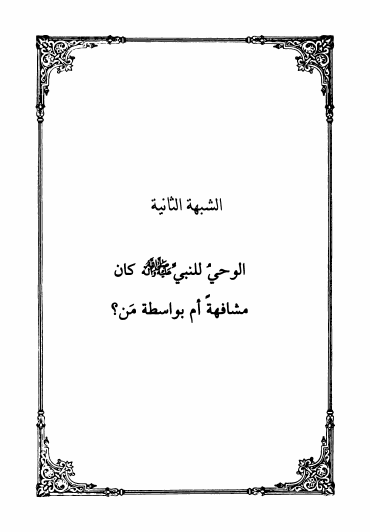 الشبهة الثانية
الوحيُ للنبيِّ ﷺ كان
مشافهةً أم بواسطة مَن؟